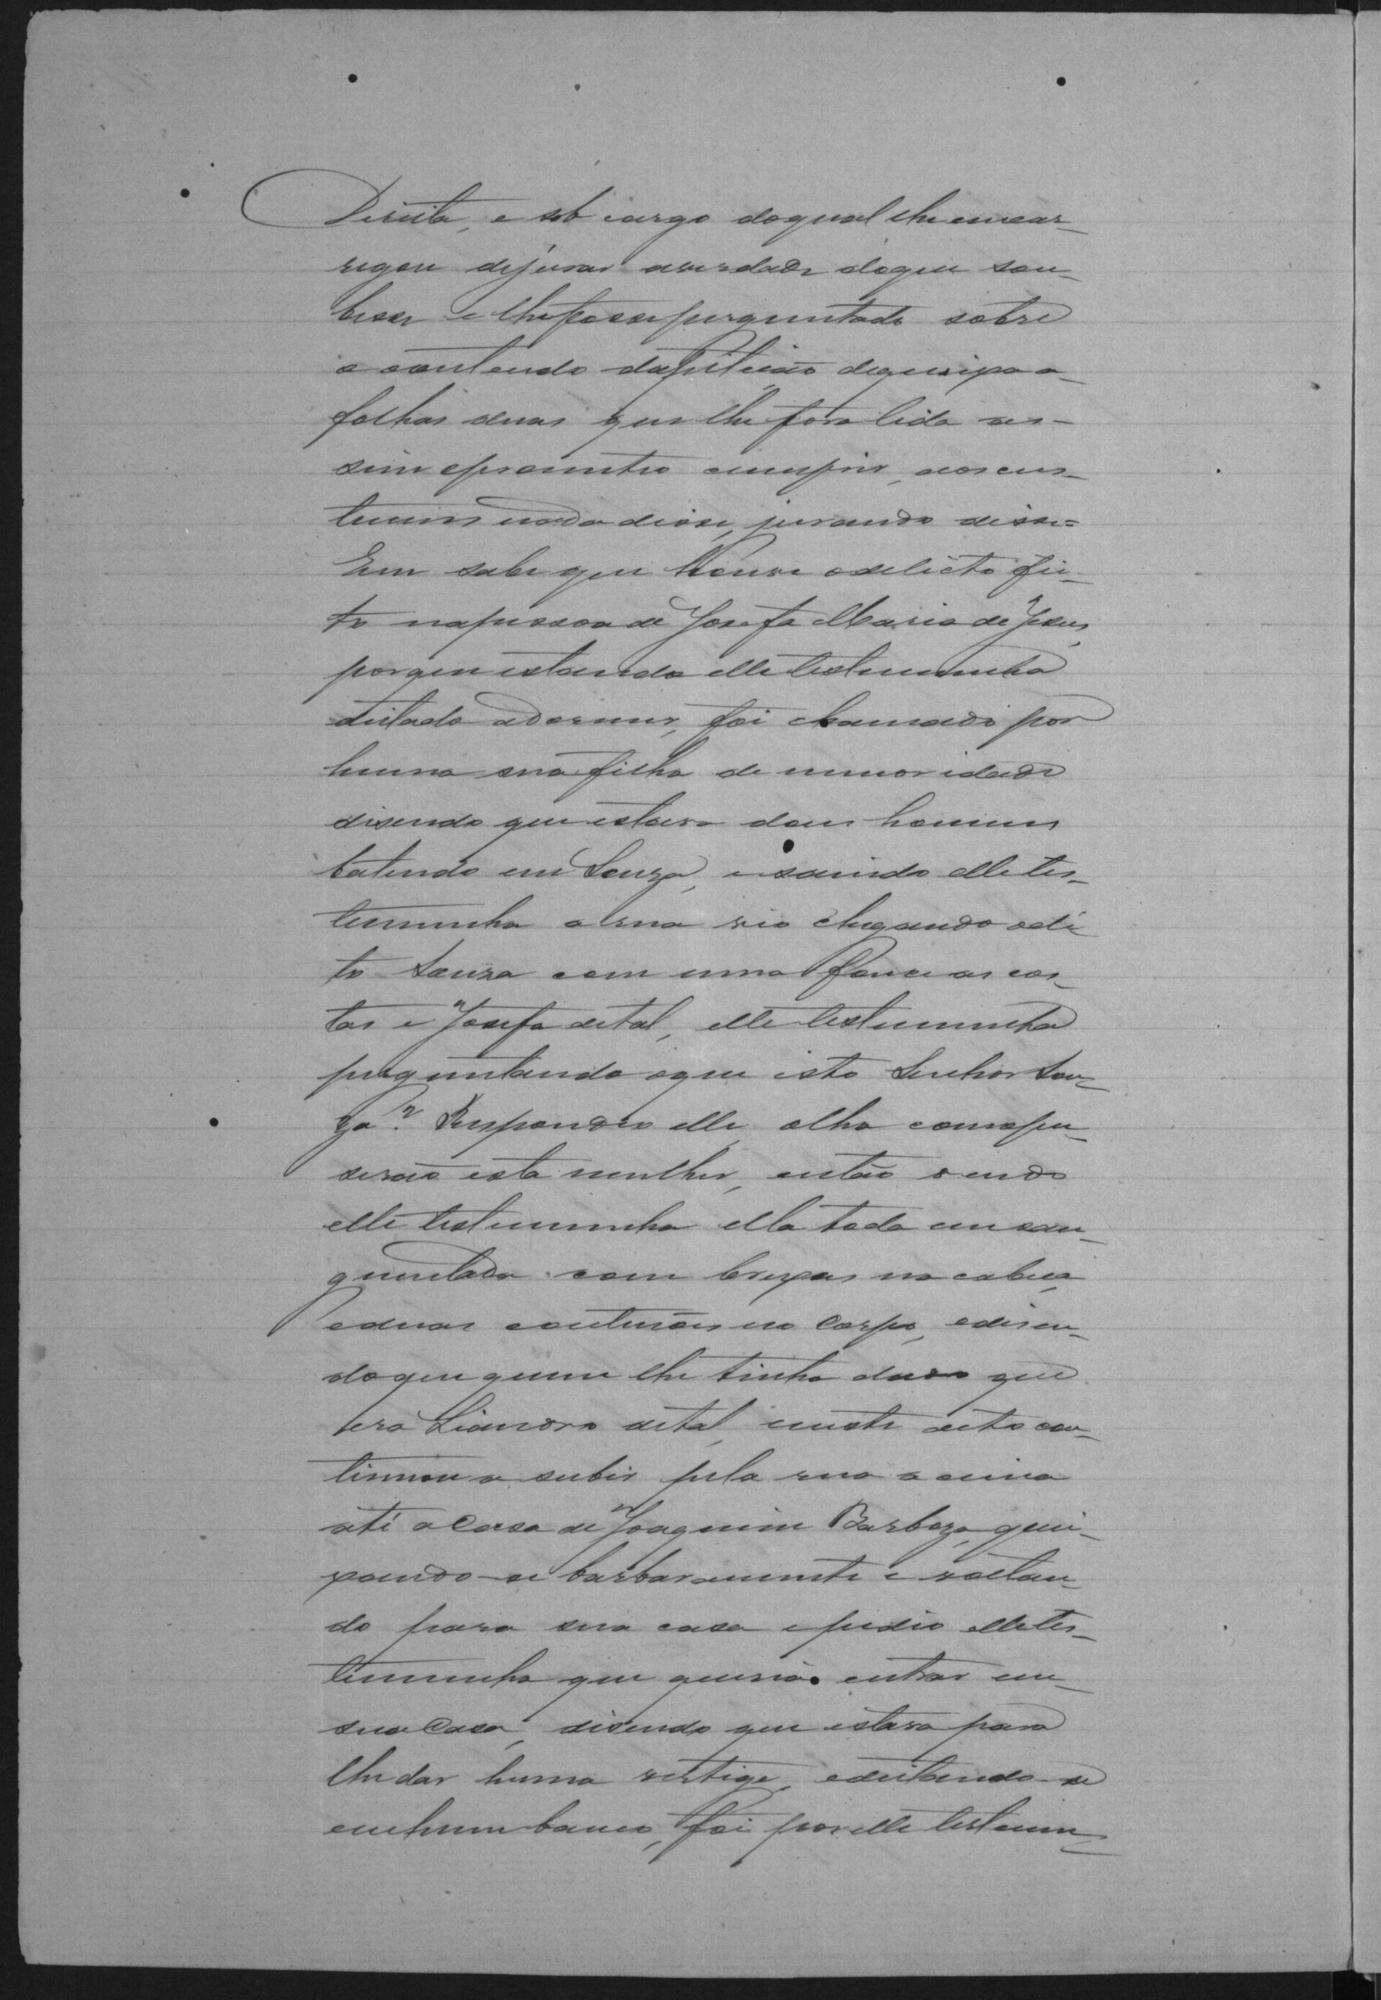 Direita, e sob cargo doqual lhe encar-
regou dejurar averdade doque sou-
besse e lhefosseperguntado sobre
o contendo dapitição dequeixa a-
folhas duas que lhe fora lida as-
sim oprometeo cumprir, aoscus-
tumes nada disse, jurando disse=
Em sabe que houve odelicto fei-
to napessoa de Josefa Maria de Jesus,
porque estando elle testemunha
deitado adormir, foi chamado por
huma sua filha de menor idade
disendo que estava dous homens
batendo em Souza, e saindo elle tes-
temunha a rua vio chegando odi
to Souza com uma fouce as cos-
tas e Josefa detal, elle testemunha
preguntando oque isto Senhor Sou-
za? Respondeo elle, olha comopu-
serão esta mulher, então vendo
elle testemunha ella toda ensan-
guentada com brexas na cabeça,
eduas contusões no Corpo, edisen-
doque quem lhe tinha dado que
era Liandro detal, neste acto con-
tinuou a subir pela rua acima
até a Casa de Joaquim Barboza, quei-
xando-se barbaramente e voltan-
do para sua casa epedio elle tes-
temunha que queria entrar em
sua Casa, disendo que estava para
lhe dar huma vertige, edeitando-se
em hum banco, foi por elle testemu-